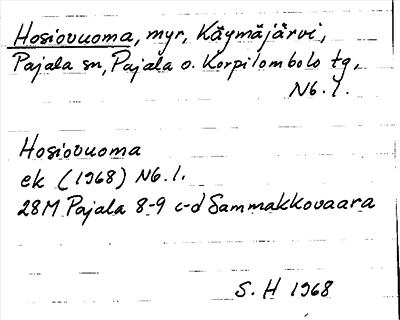 Hosiovuoma, myr, Käymäjärvi,
Pajala sn, Pajala o. Korpilombolo tg,
Nb. l.
Hosiovuoma
ek (1968) Nb. l.
28M Pajala 8-9 c-d Sammakkovaara
S. H 1968